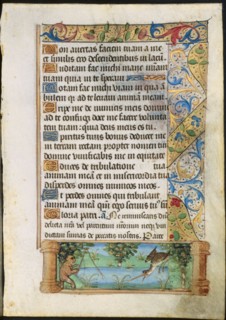 Non avertas faciem tuam a me
et similis ero descendentibus in lacu.
Auditam fac michi mane misericordiam
tuam quia in te speravi
Notam fac michi viam in qua a
bulem qz ad te levavi animā meam
Eripe me de inimicis meis domine
ad te confugi doce me facere voluntā
tem tuam : quia deus meus es tu.
Spiritus tuus bonus deducet me
in terram rectam propter nomen tuū
domine vivificabis me in equitate
Educes de tribulatione
animam meā et in misericordia tua
disperdes omnes inimicos meos.
Et perdes omnes qui tribulant
animam meā qm̄ ego servus tuus sū
Gloria patri. Ne reminiscaris dn̄e
delicta nr̄a vel parentum nr̄orum neqz vin
dictam sumas de peccatis nostris.